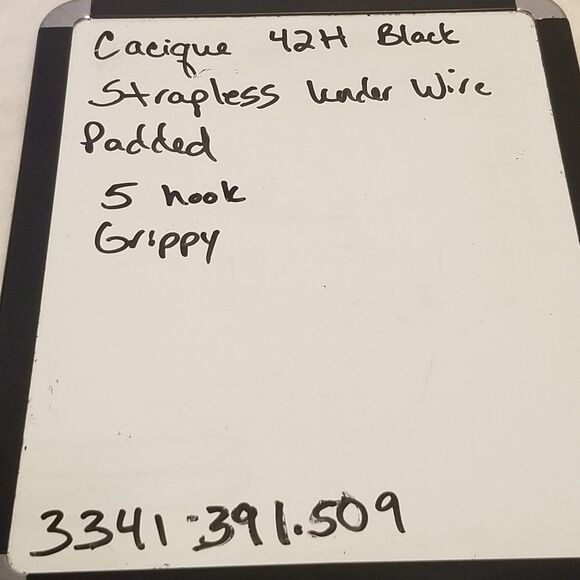 Cacique 42H Black
Strapless Under Wire
Padded
5 hook
Grippy
3341-391.509